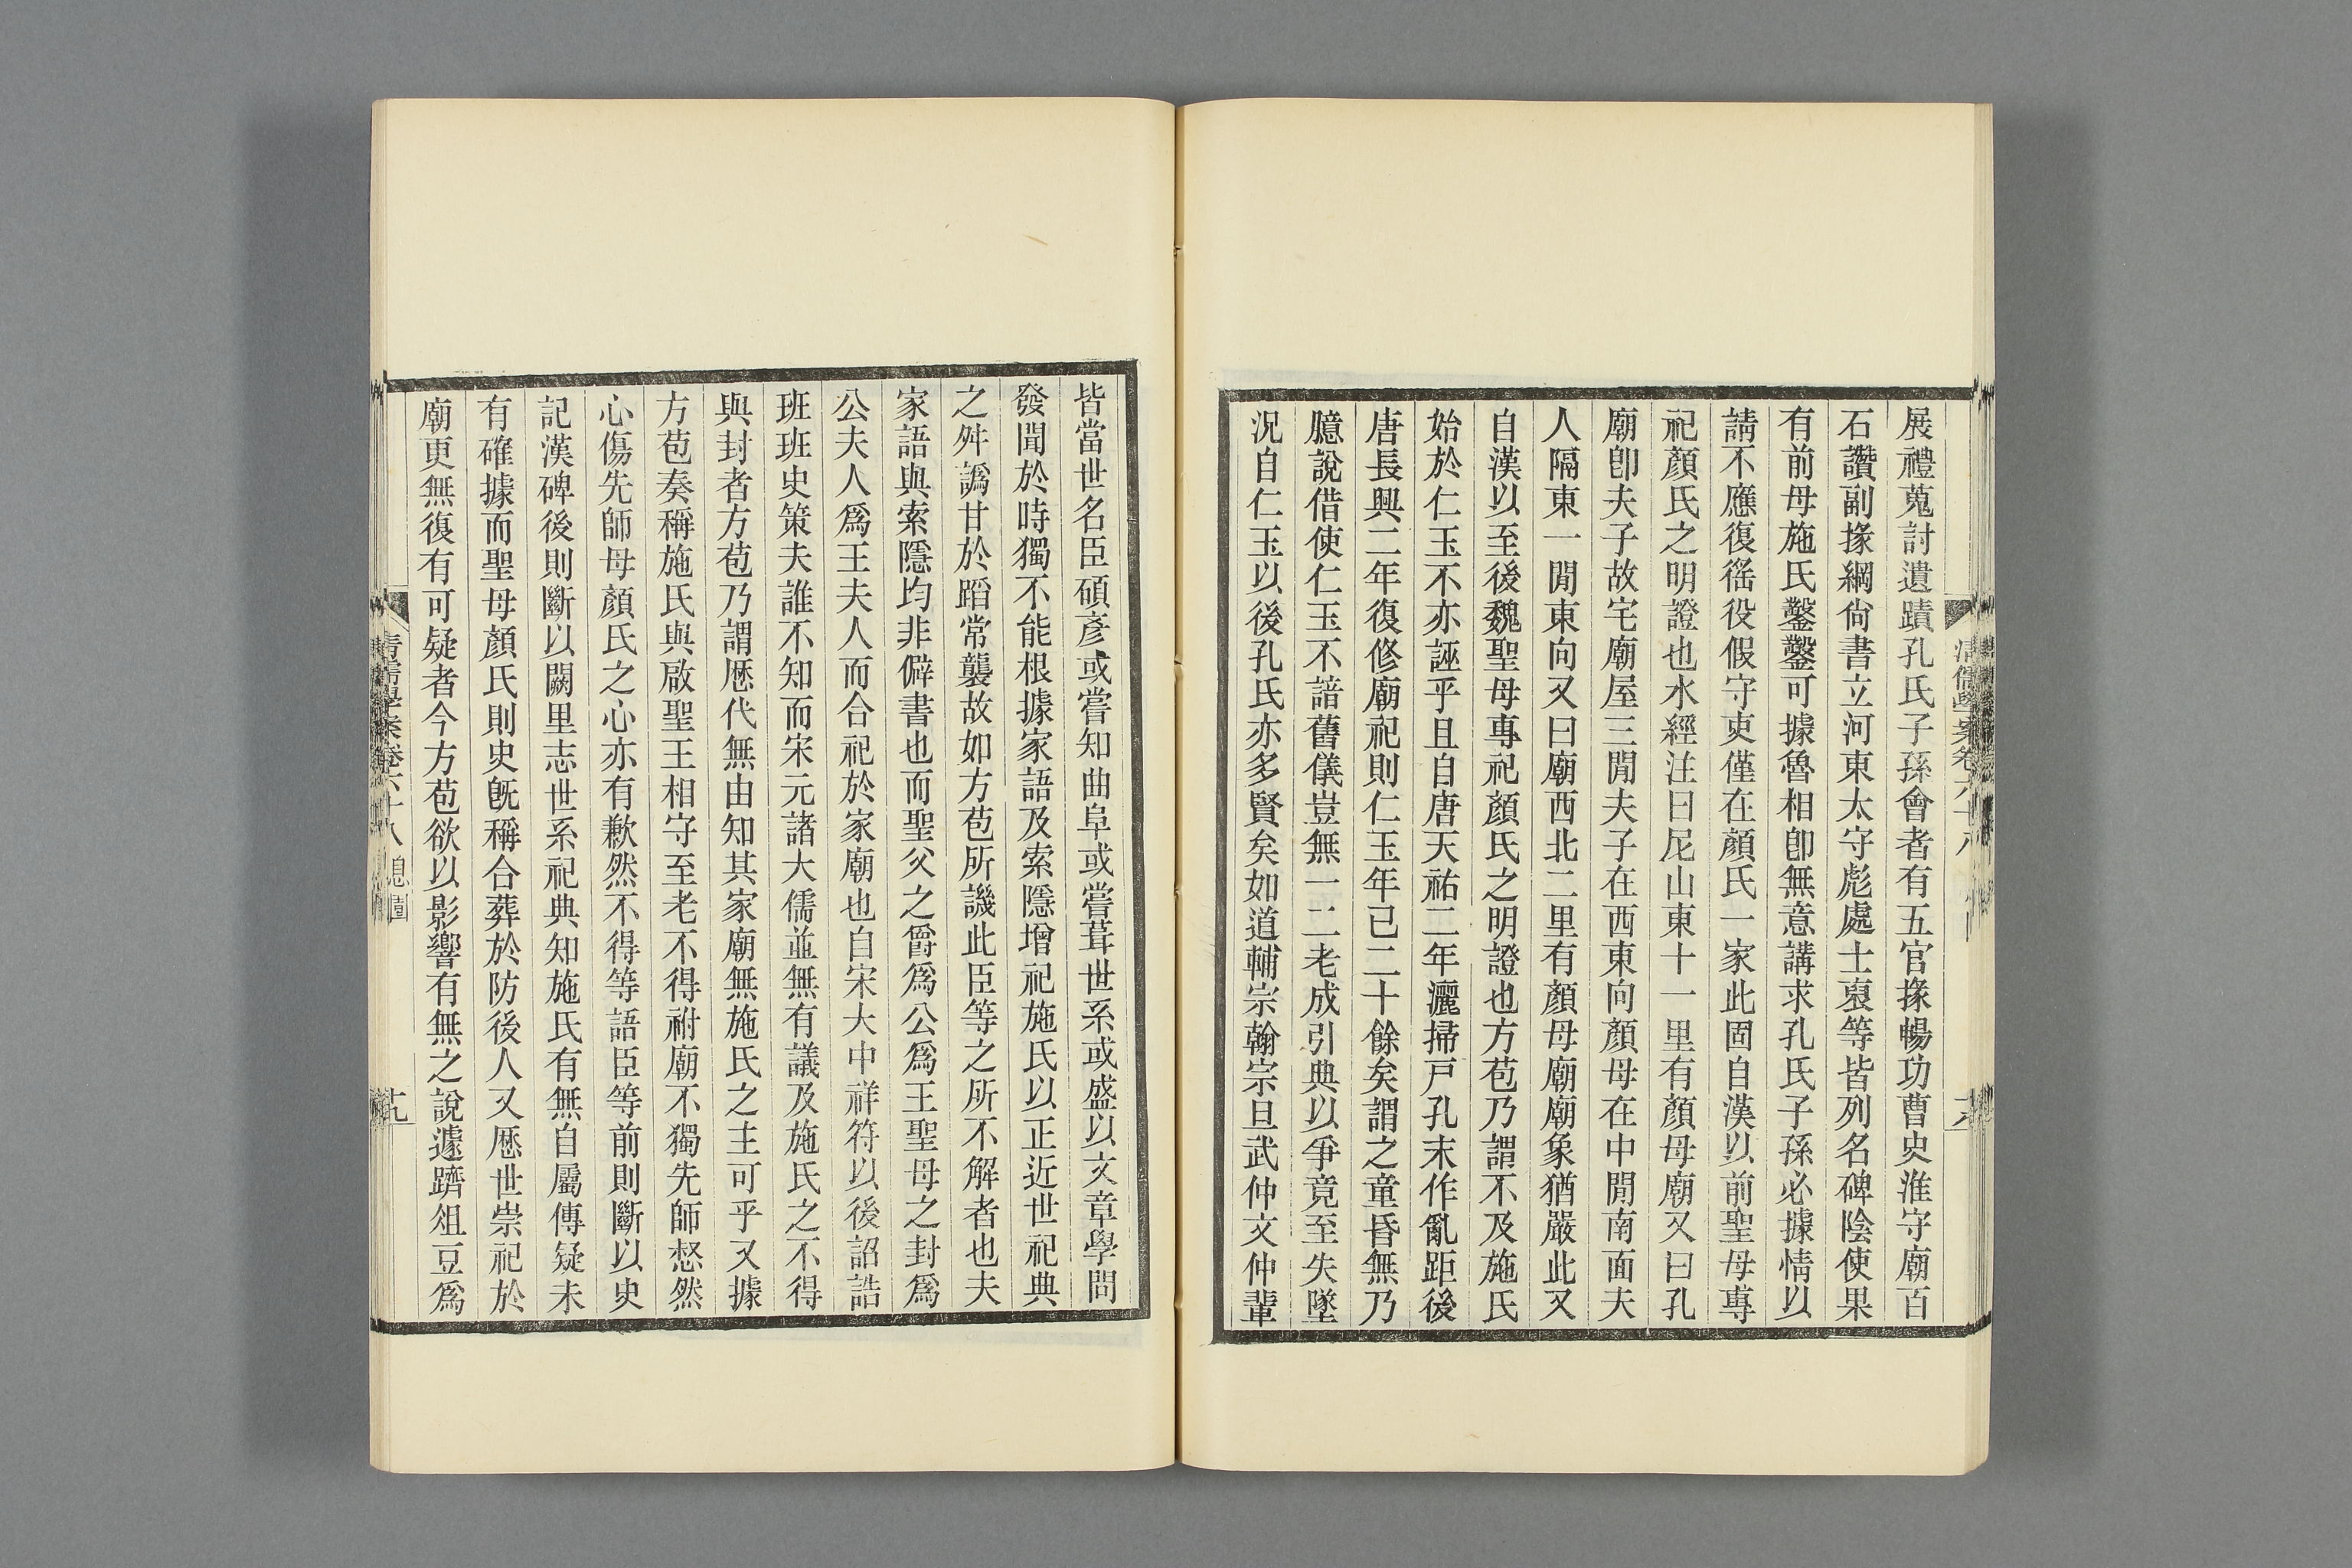 展禮蒐討遺蹟孔氏子孫會者有五官掾暢功曹史淮守廟百
石讚副掾綱尙書立河東太守彪處士裒等皆列名碑陰使果
有前母施氏鑿鑿可據魯相卽無意講求孔氏子孫必據情以
請不應復徭役假守吏僅在顏氏一家此固自漢以前聖母專
祀顏氏之明證也水經注曰尼山東十一里有顏母廟又曰孔
廟卽夫子故宅廟屋三閒夫子在西東向顏母在中閒南面夫
人隔東一閒東向又曰廟西北二里有顏母廟廟象猶嚴此又
自漢以至後魏聖母專祀顏氏之明證也方苞乃謂不及施氏
始於仁玉不亦誣乎且自唐天祐二年灑掃戸孔末作亂距後
唐長興二年復修廟祀則仁玉年已二十餘矣謂之童昏無乃
臆說借使仁玉不諳舊儀豈無一二老成引典以爭竟至失墜
況自仁玉以後孔氏亦多賢矣如道輔宗翰宗旦武仲文仲輩
清儒學案卷六十八
皆當世名臣碩彥或嘗知曲阜或嘗葺世系或盛以文章學問
發聞於時獨不能根據家語及索隱增祀施氏以正近世祀典
之舛譌甘於蹈常襲故如方苞所譏此臣等之所不解者也夫
家語與索隱均非僻書也而聖父之爵爲公爲王聖母之封爲
公夫人爲王夫人而合祀於家廟也自宋大中祥符以後詔誥
班班史策夫誰不知而宋元諸大儒並無有議及施氏之不得
與封者方苞乃謂歷代無由知其家廟無施氏之主可乎又據
方苞奏稱施氏與啟聖王相守至老不得祔廟不獨先師惄然
心傷先師母顏氏之心亦有歉然不得等語臣等前則斷以史
記漢碑後則斷以闕里志世系祀典知施氏有無自屬傳疑未
有確據而聖母顏氏則史旣稱合葬於防後人又歷世崇祀於
廟更無復有可疑者今方苞欲以影響有無之說遽躋俎豆爲
清儒學案卷六十八 息園 十九